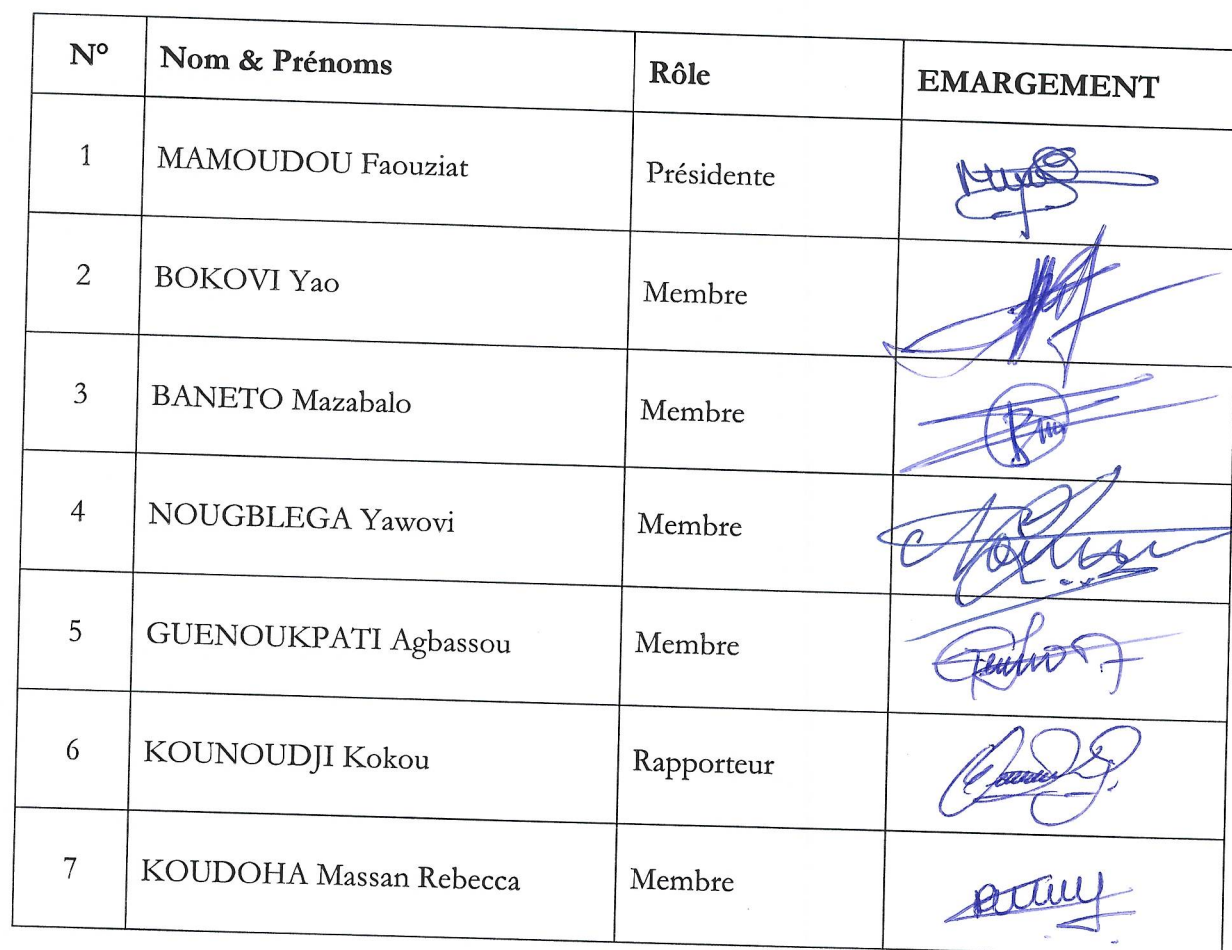 N° Nom & Prénoms Rôle EMARGEMENT
1 MAMOUDOU Faouziat Présidente
2 BOKOVI Yao Membre
3 BANETO Mazabalo Membre
4 NOUGBLEGA Yawovi Membre
5 GUENOUKPATI Agbassou Membre
6 KOUNOUDJI Kokou Rapporteur
7 KOUDOHA Massan Rebecca Membre